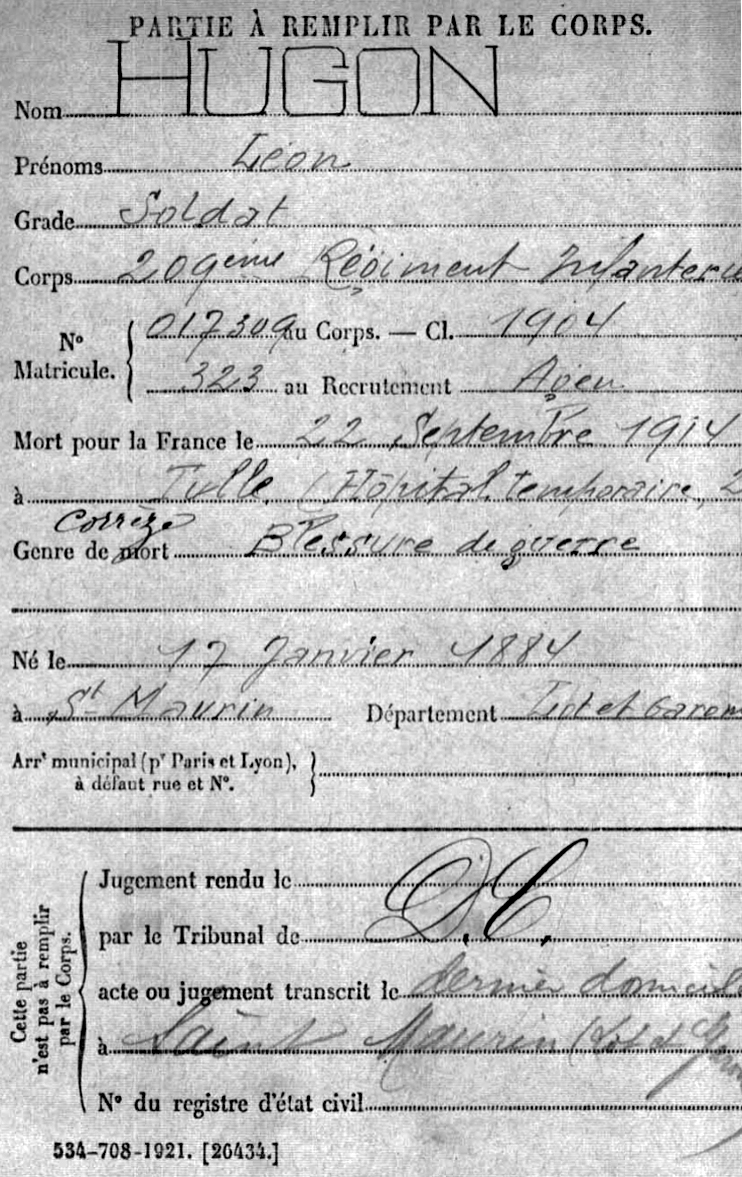 PARTIE À REMPLIR PAR LE CORPS.
Nom HUGON
Prénoms Léon
Grade Soldat
Corps 209ème Régiment Infanterie
N° Matricule. 017309 au Corps. — Cl. 1904
323 au Recrutement Agen
Mort pour la France le 22 Septembre 1914
à Tulle (Hôpital temporaire, 2
Corrèze
Genre de mort Blessure de guerre
Né le 17 Janvier 1884
à St Maurin Département Lot et Garonn
Arrt municipal (pr Paris et Lyon),
à défaut rue et N°.
Cette partie
n'est pas à remplir
par le Corps.
Jugement rendu le
par le Tribunal de D.C.
acte ou jugement transcrit le dernier domicile
à Saint Maurin (Lot et Garon
N° du registre d'état civil
534-708-1921. [26434.]